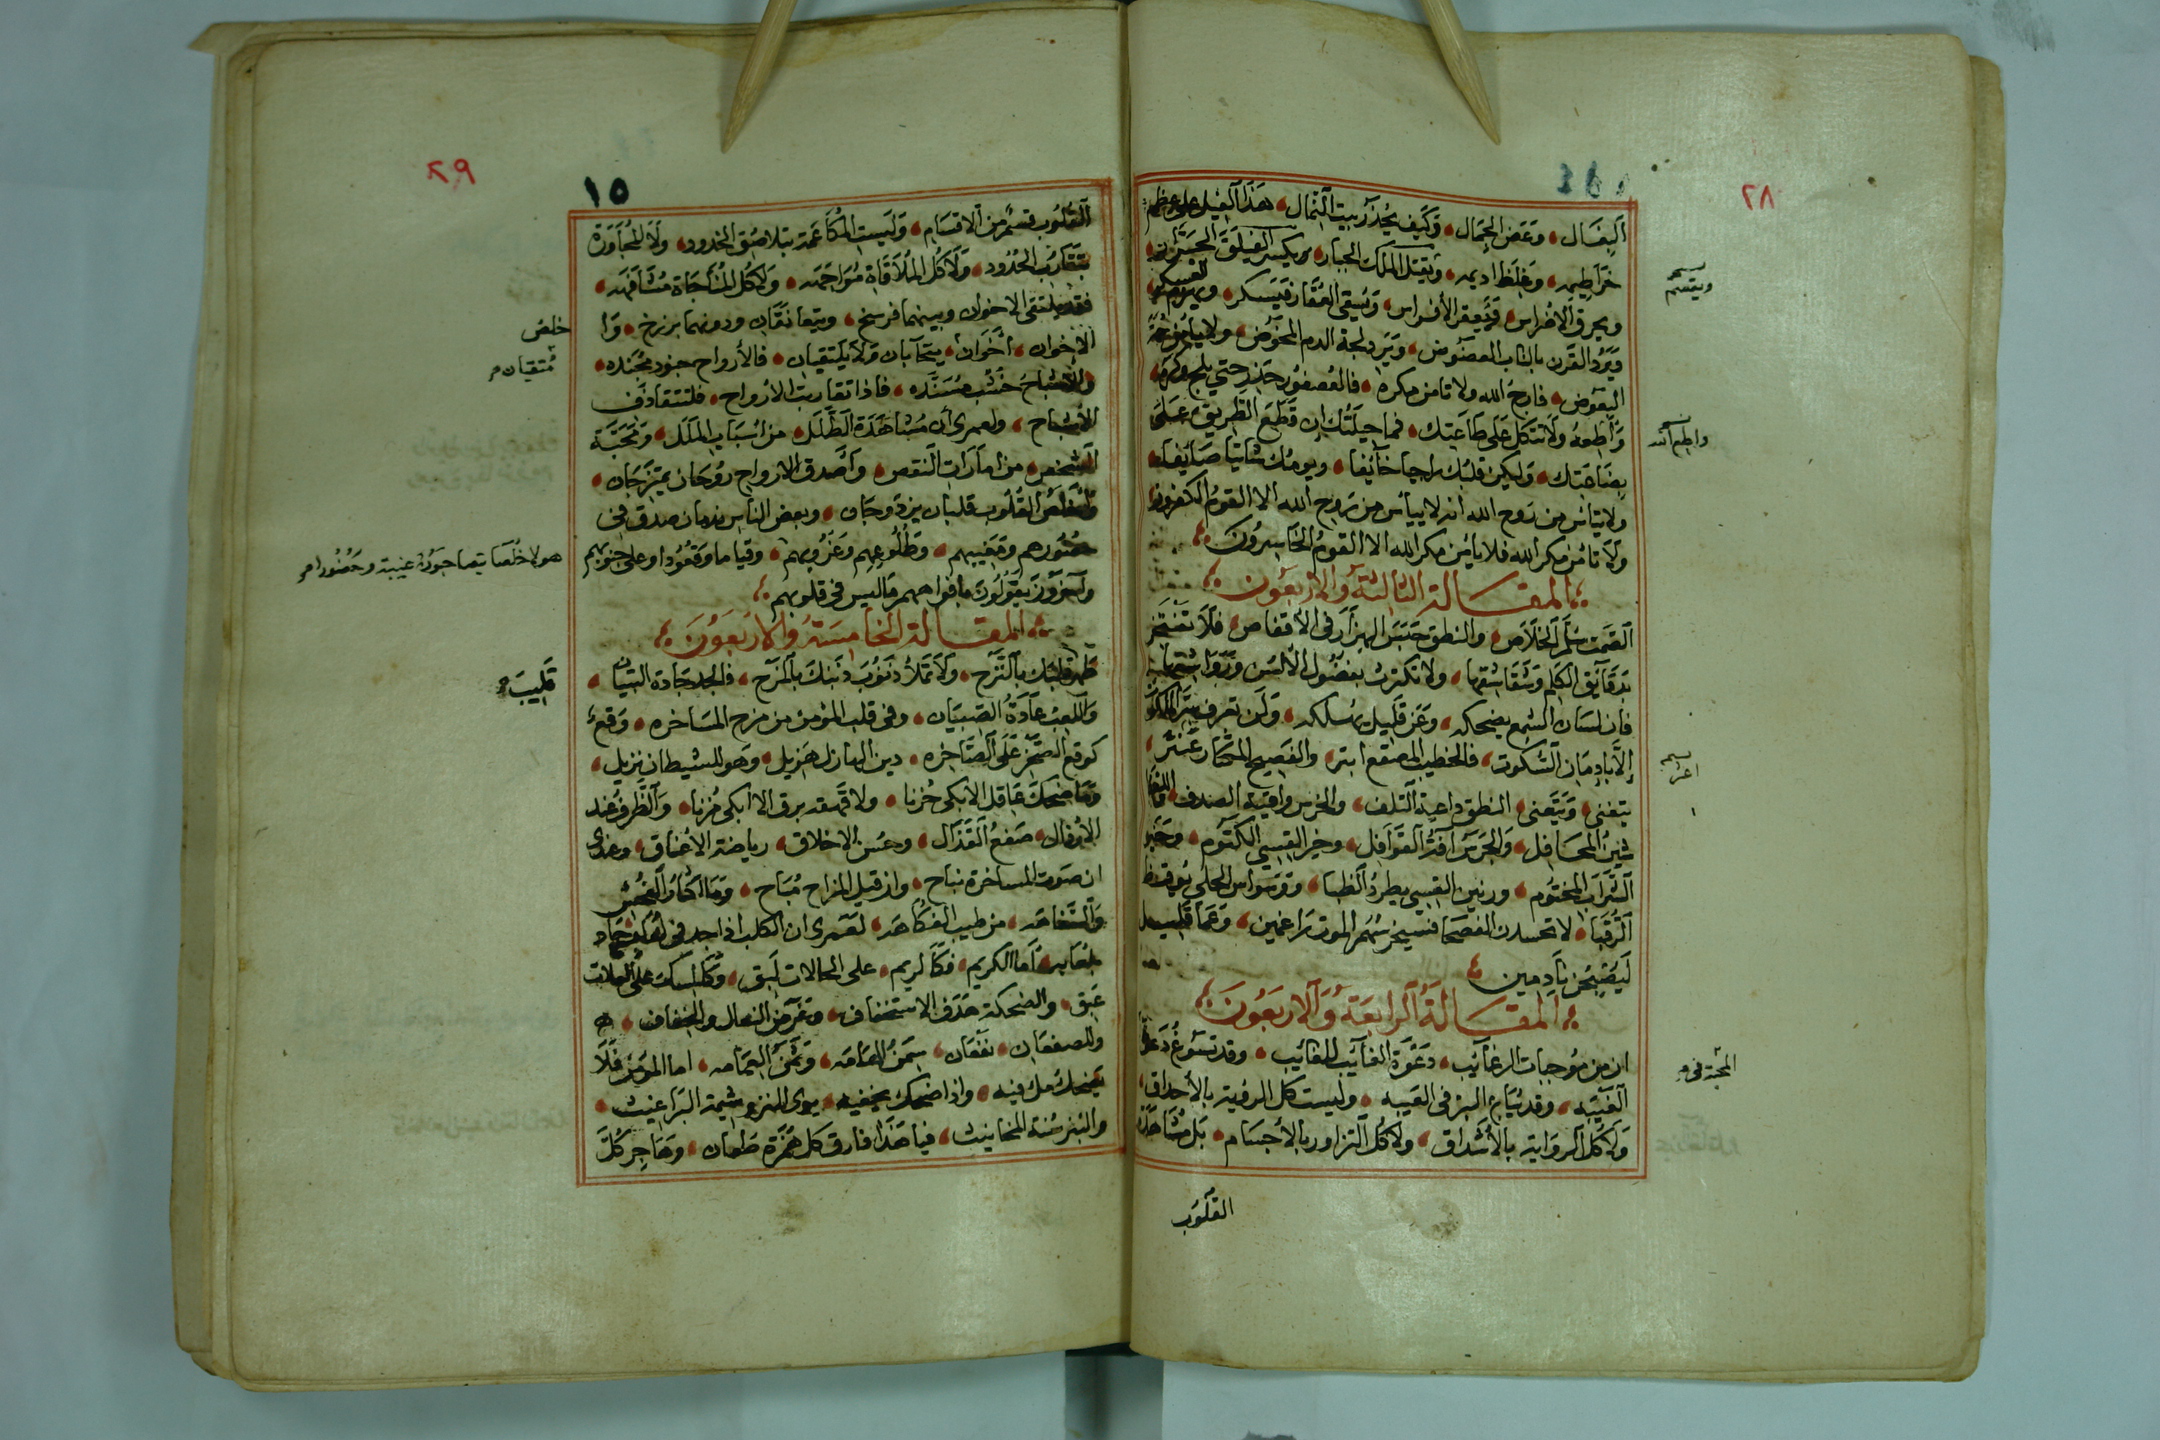 ٢٨
البغال وعض الجمال وكيف يحذر بيت النمال هذا الفيل على عظم
خراطيمه وغلظ اديمه ويقتل الملك الجبار ويكسر الفيلق الجرار
ويحرق الاضراس فيعقر الأفراس ويسقى العقار فيسكر
ويرد القرن بالناب العضوض ويرد لجة الدم المخوض ولا
البعوض فارج الله ولا تامن مكره فالعصفور حذر حتى يلج وكره
وأطعه ولا تتكل على طاعتك فما حيلتك إن قطع الطريق على
بضاعتك وليكن قلبك راجيا خائفا ويومك شاتيا صائفا
ولا تيأس من روح الله انه لا ييأس من روح الله الا القوم الكفرون
ولا تأمن مكر الله فلا يأمن مكر الله الا القوم الخاسرون
المقالة الثالثة والاربعون
الصمت سلم الخلاص والنطق حبس الهزار فى الأقفاص فلا تغتر
بدقائق الكلم وشقاشقها ولا تكترث بفضول الألسن ورواشقها
فان لسان الشمع يضحكه وعن قليل يهلكه ولن تعرف سر الملكوت
إلا بإدمان السكوت فالخطيب المصقع ابتر والفصيح المكثار عنتر
يتغنى ويتعنى النطق داعية التلف والخرس واقية الصدف واللغا
شين المحافل والجرس آفة القوافل وخير القسي الكتوم وخير
الشراب المختوم ورنين القسي يطرد الظبا ووسواس الحلى يوقظ
الرقبا لا تحسدن الفصحا فسيخرسهم الموت راغمين وعما قليل
ليصبحن نادمين
المقالة الرابعة والاربعون
ان من موجبات الرغائب دعوة الغائب للغائب وقد تسوغ
الغيبه وقد تباع البز فى العيبه وليست كل الرؤية بالأحداق
ولا كل الرواية بالأشداق ولا كل التزاور بالأجسام بل مشاهدة
القلوب
ويقسم
واطع الله
المحبة فى
٢٩
١٥
القلوب قسم من الاقسام وليست المكاعمة بتلاصق الخدود ولا المجاورة
بتقارب الحدود ولا كل الملاقاة مواجهه ولا كل المناجاة مشافهه
فقد يلتقى الاخوان وبينهما فرسخ ويتعانقان ودونهما برزخ وا
الاخوان أخوان يتحابان ولا يلتقيان فالأرواح جنود مجنده
والاشباح خشب مسنده فاذا تقاربت الأرواح فلتتقاذف
الأشباح ولعمرى أن مشاهدة الطلل من أسباب الملل ومحبة
الشخص من امارات النقص وأصدق الارواح روحان يمتزجان
وأخلص القلوب قلبان يزدوجان وبعض الناس ندمان صدق فى
حضورهم ومغيبهم وطلوعهم وغروبهم وقياما وقعودا وعلى جنوبهم
وآخرون يقولون بافواههم ماليس فى قلوبهم
المقالة الخامسة والاربعون
طهر قلبك بالترح ولا تملأ ذنوب ذنبك بالمرح فالجد جادة التبيان
واللعب عادة الصبيان وفى قلب المؤمن من مزح المساخره وقع
كوقع الصخر على الصاخره دين الهازل هزيل وهو للشيطان نزيل
وما ضحك عاقل الا بكى حزنا ولا قهقه برق الا ابكى مزنا والظرف عند
الأرذال صفع القذال وحسن الاخلاق رياضة الأعناق وعندى
ان صوت المساخرة نباح وان قيل المزاح مباح وما اكثار الفحش
والسفاهه من طيب الفكاهه لعمرى ان الكلب اذا جد فى
اما الكريم فكالريم على الحالات لبق وكالمسك على العلات
عبق والضحكة هدف الاستخفاف ومعرض النعال والخفاف
وللصفعان نفقان سمن الهامه وثمن العمامه اما المؤمن فلا
يضحك ملء فيه واذا ضحك يخفيه يرى النزو شيمة البراغيث
والنبز سنة المخانيث فيا هذا فارق كل همزة طعان وهاجر كل
خلص
متقيان
هولا خلصا يتصاحبون غيبة وحضورا
قليب